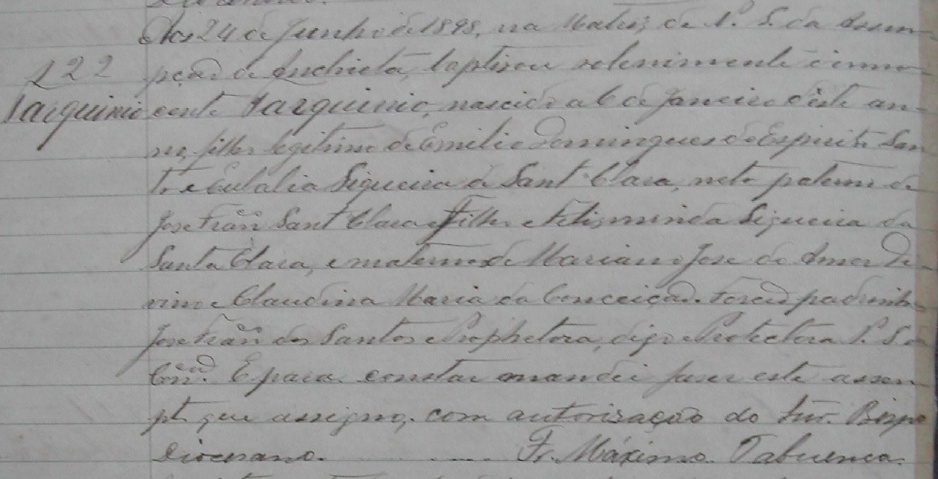 Aos 24 de Junho de 1898, na Matriz de N. S. da Assum-
122
pção de Anchieta, baptisou solenimente o inno-
Tarquinio
cente Tarquinio, nascido a 6 de Janeiro d'este an-
no, filho legitimo de Emilio Domingues do Espirito San-
to e Eulalia Siqueira de Sant'Clara, neto paterno de
José Fran.co Sant'Clara e Filho e Felisminda Siqueira da
Santa Clara, e materno de Mariano José do Amor De-
vino e Claudina Maria da Conceição. Forão padrinhos
José Fran.co dos Santos e Prophetora, digo Protectora N. S. da
Con.ção. E para constar mandei faser este assem-
pto que assigno, com autorização do Snr. Bispo
Diocesano. Fr. Máximo Tabuenca.